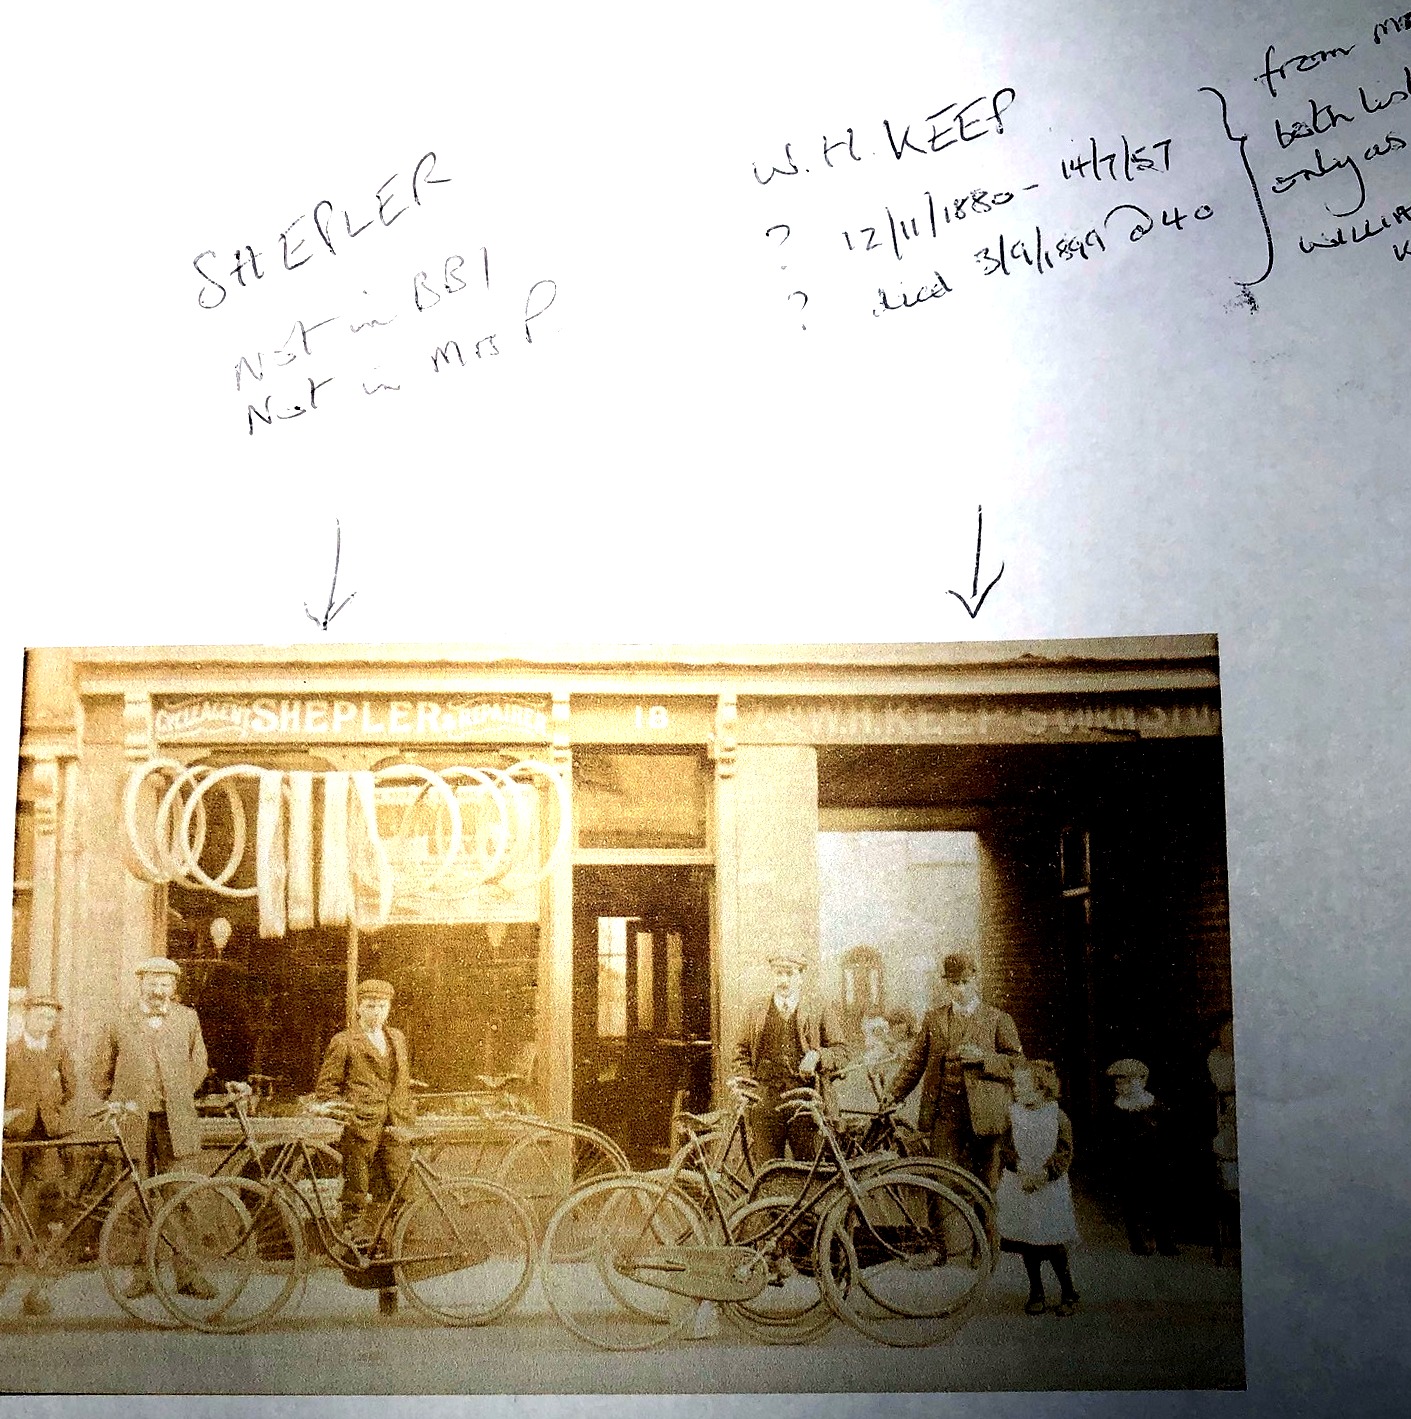 SHEPLER
Not in BB1
Not in Mrs P.
W. H. KEEP
? 12/11/1880 - 14/7/57
? died 3/9/1899 @ 40
from Mrs
both list
only as
WILLIA
K
CYCLE AGENT SHEPLER & REPAIRER
18
W.H. KEEP